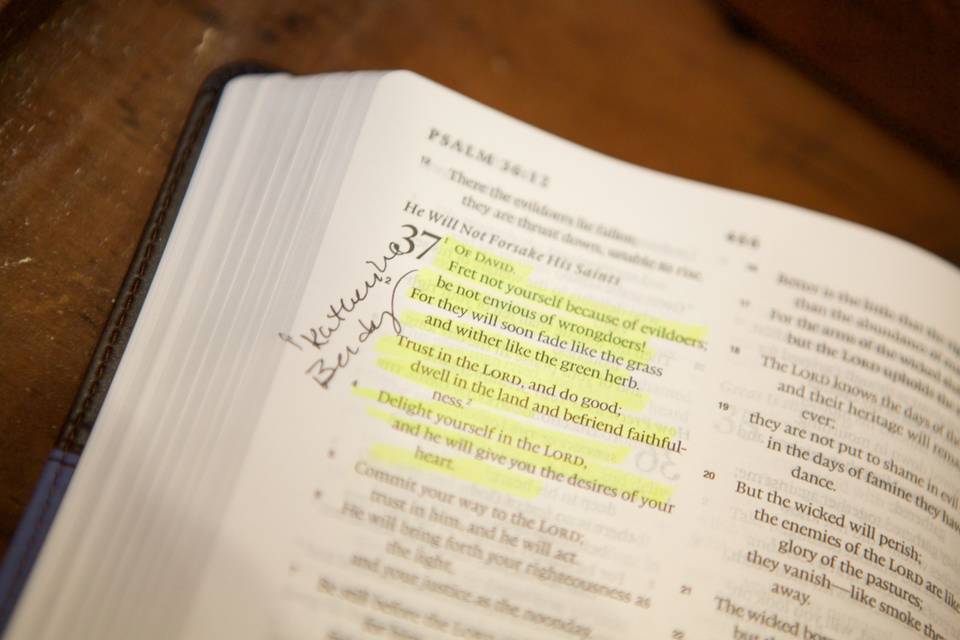 PSALM 36:12
12
There the evildoers lie fallen;
they are thrust down, unable to rise.
He Will Not Forsake His Saints
37
1 OF DAVID.
Fret not yourself because of evildoers;
be not envious of wrongdoers!
2
For they will soon fade like the grass
and wither like the green herb.
Trust in the LORD, and do good;
dwell in the land and befriend faithful-
ness.2
4
Delight yourself in the LORD,
and he will give you the desires of your
heart.
5
Commit your way to the LORD;
trust in him, and he will act.
6
He will bring forth your righteousness as
the light,
and your justice as the noonday.
Be still before the LORD
Katherine
466
16
Better is the little that the
than the abundance of
17
For the arms of the wicked
but the LORD upholds the
18
The LORD knows the days of the
and their heritage will remain
ever;
19
they are not put to shame in evil
in the days of famine they have
dance.
20
But the wicked will perish;
the enemies of the LORD are like
glory of the pastures;
they vanish—like smoke they
away.
21
The wicked
but the
22